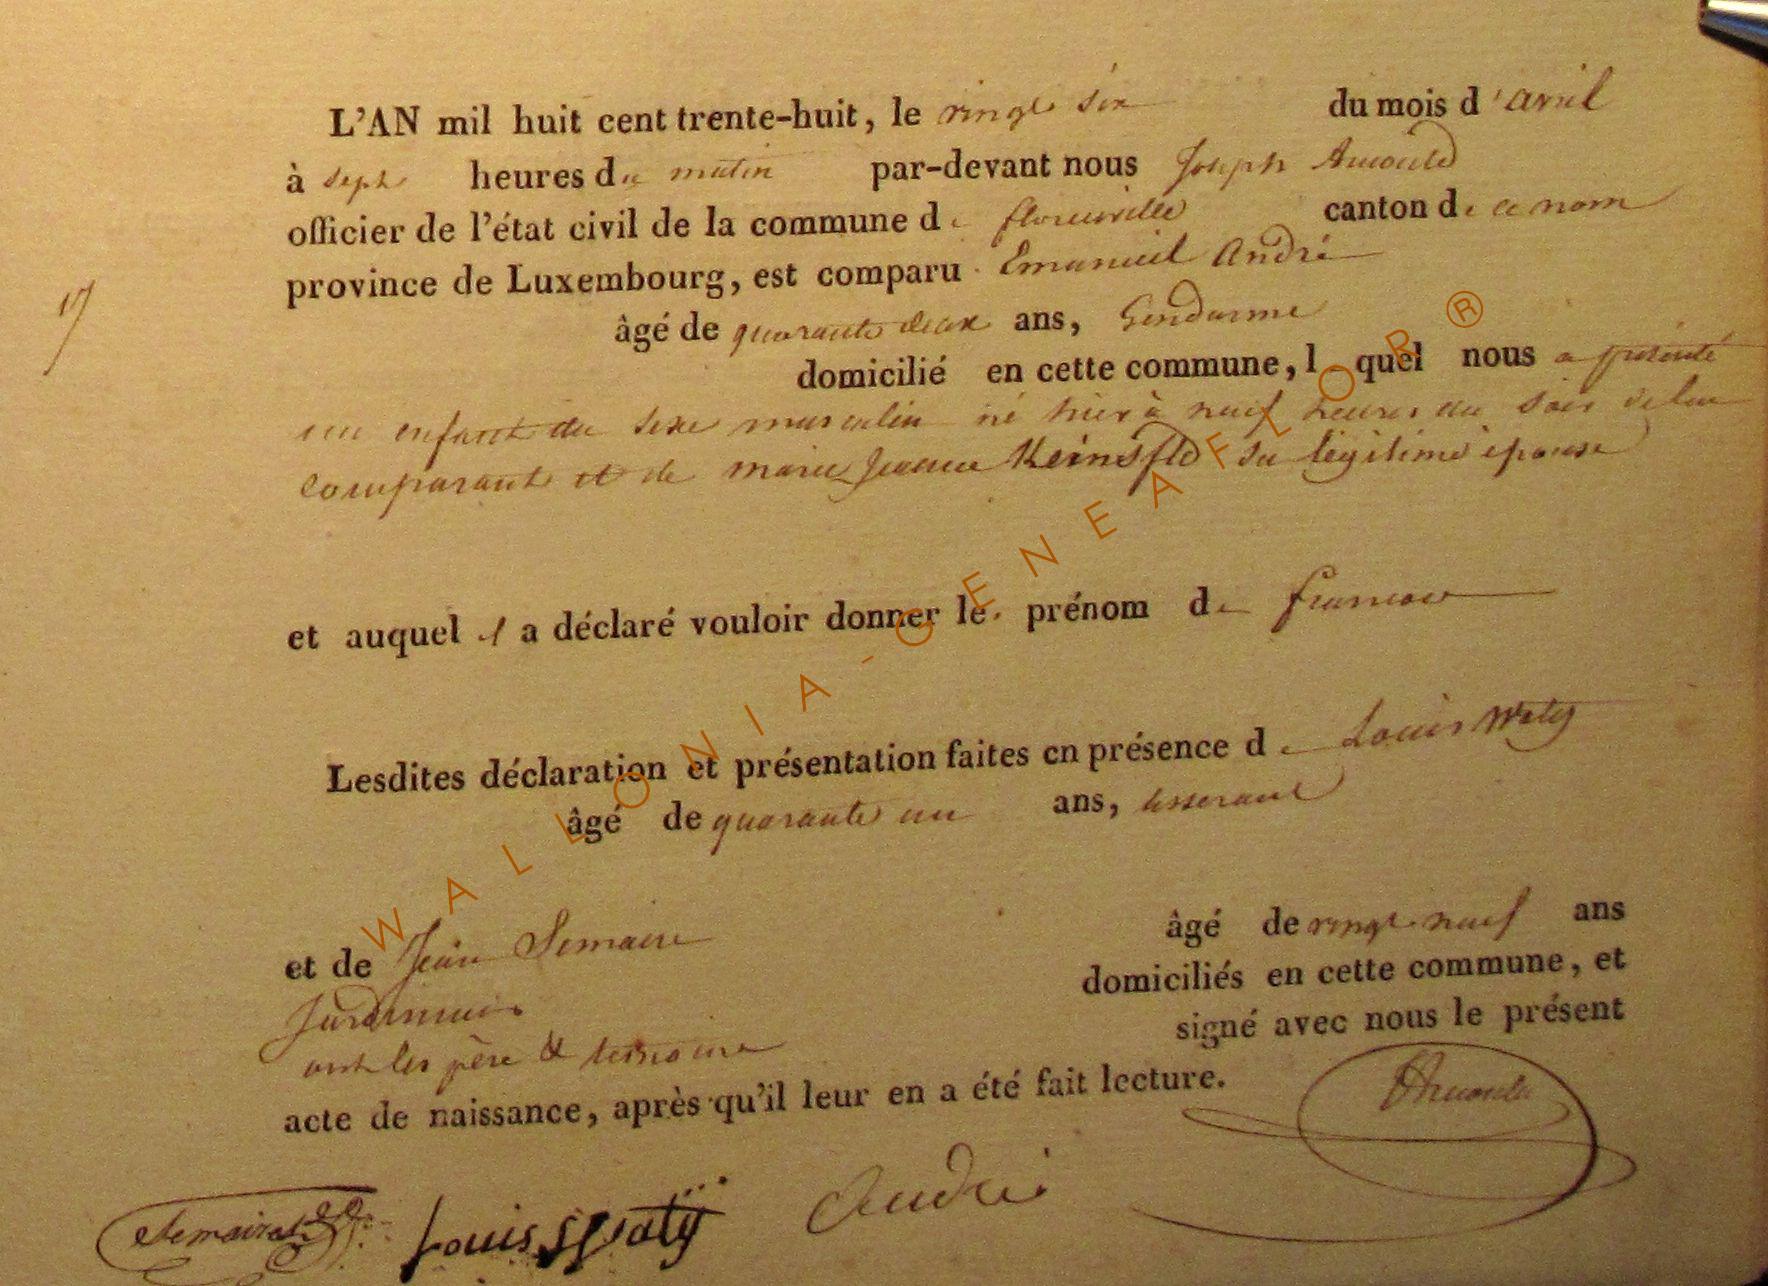 L'AN mil huit cent trente-huit, le vingt six du mois d'avril
à sept heures du matin par-devant nous Joseph Arnould
officier de l'état civil de la commune de florenville canton de ce nom
province de Luxembourg, est comparu Emanuel André
17
âgé de quarante deux ans, Gendarme
domicilié en cette commune, lequel nous a présenté
un enfant du sexe masculin né hier à neuf heures du soir de lui
comparant et de marie Jeanne sa légitime épouse
et auquel il a déclaré vouloir donner le prénom de francois
Lesdites déclaration et présentation faites en présence de Louis Waty
âgé de quarante un ans, tisserand
et de Jean Lemaire âgé de vingt neuf ans
domiciliés en cette commune, et
Jardinier
signé avec nous le présent
ont les père & temoins
acte de naissance, après qu'il leur en a été fait lecture.
Arnould
Lemaire Louis Waty André
WALLONIA-GENEAFLOR ®